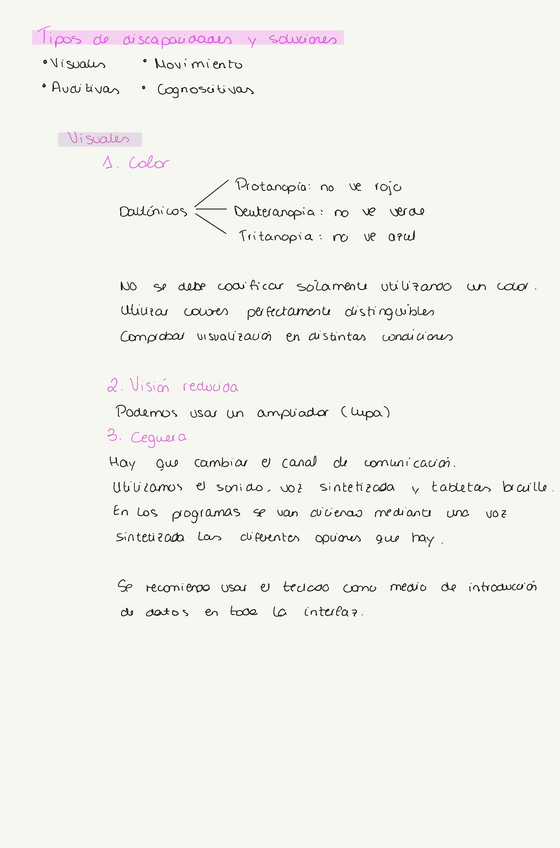 Tipos de discapacidades y soluciones
• Visuales • Movimiento
• Auditivas • Cognoscitivas
Visuales
1. Color
Protanopía: no ve rojo
Daltónicos Deuteranopia: no ve verde
Tritanopia: no ve azul
No se debe codificar solamente utilizando un color.
Utilizar colores perfectamente distinguibles
Comprobar visualización en distintas condiciones
2. Visión reducida
Podemos usar un ampliador (lupa)
3. Ceguera
Hay que cambiar el canal de comunicación.
Utilizamos el sonido, voz sintetizada y tabletas braille.
En los programas se van diciendo mediante una voz
sintetizada las diferentes opciones que hay.
Se recomienda usar el teclado como medio de introducción
de datos en toda la interfaz.